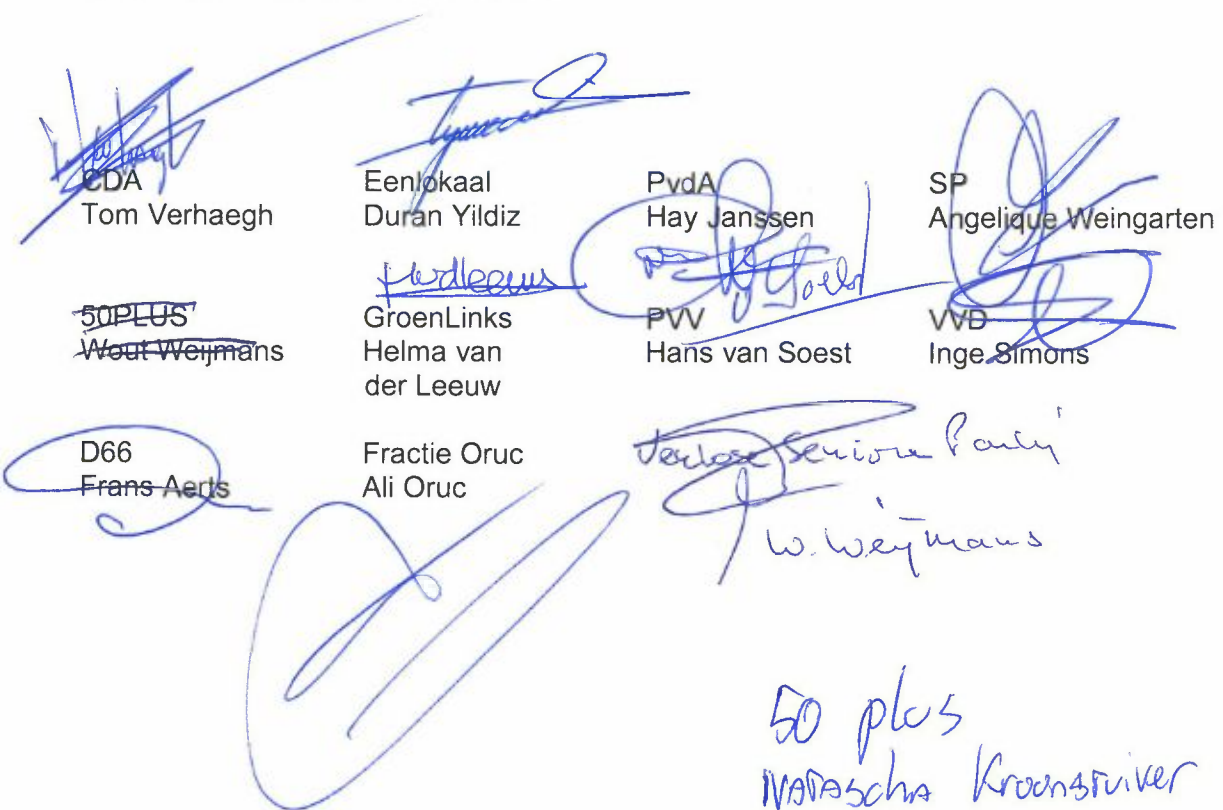 CDA
Tom Verhaegh
Eenlokaal
Duran Yildiz
PvdA
Hay Janssen
SP
Angelique Weingarten
50PLUS
Wout Weijmans
GroenLinks
Helma van
der Leeuw
PVV
Hans van Soest
VVD
Inge Simons
D66
Frans Aerts
Fractie Oruc
Ali Oruc
Senioren Partij
W. Weijmans
50 plus
NATASCHA Kroonstuiver